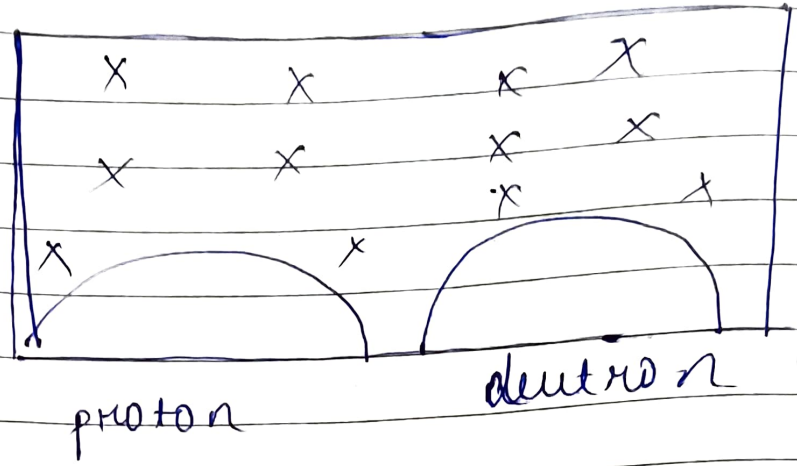 X X X X
X X X X
X X
X X
proton
deutron